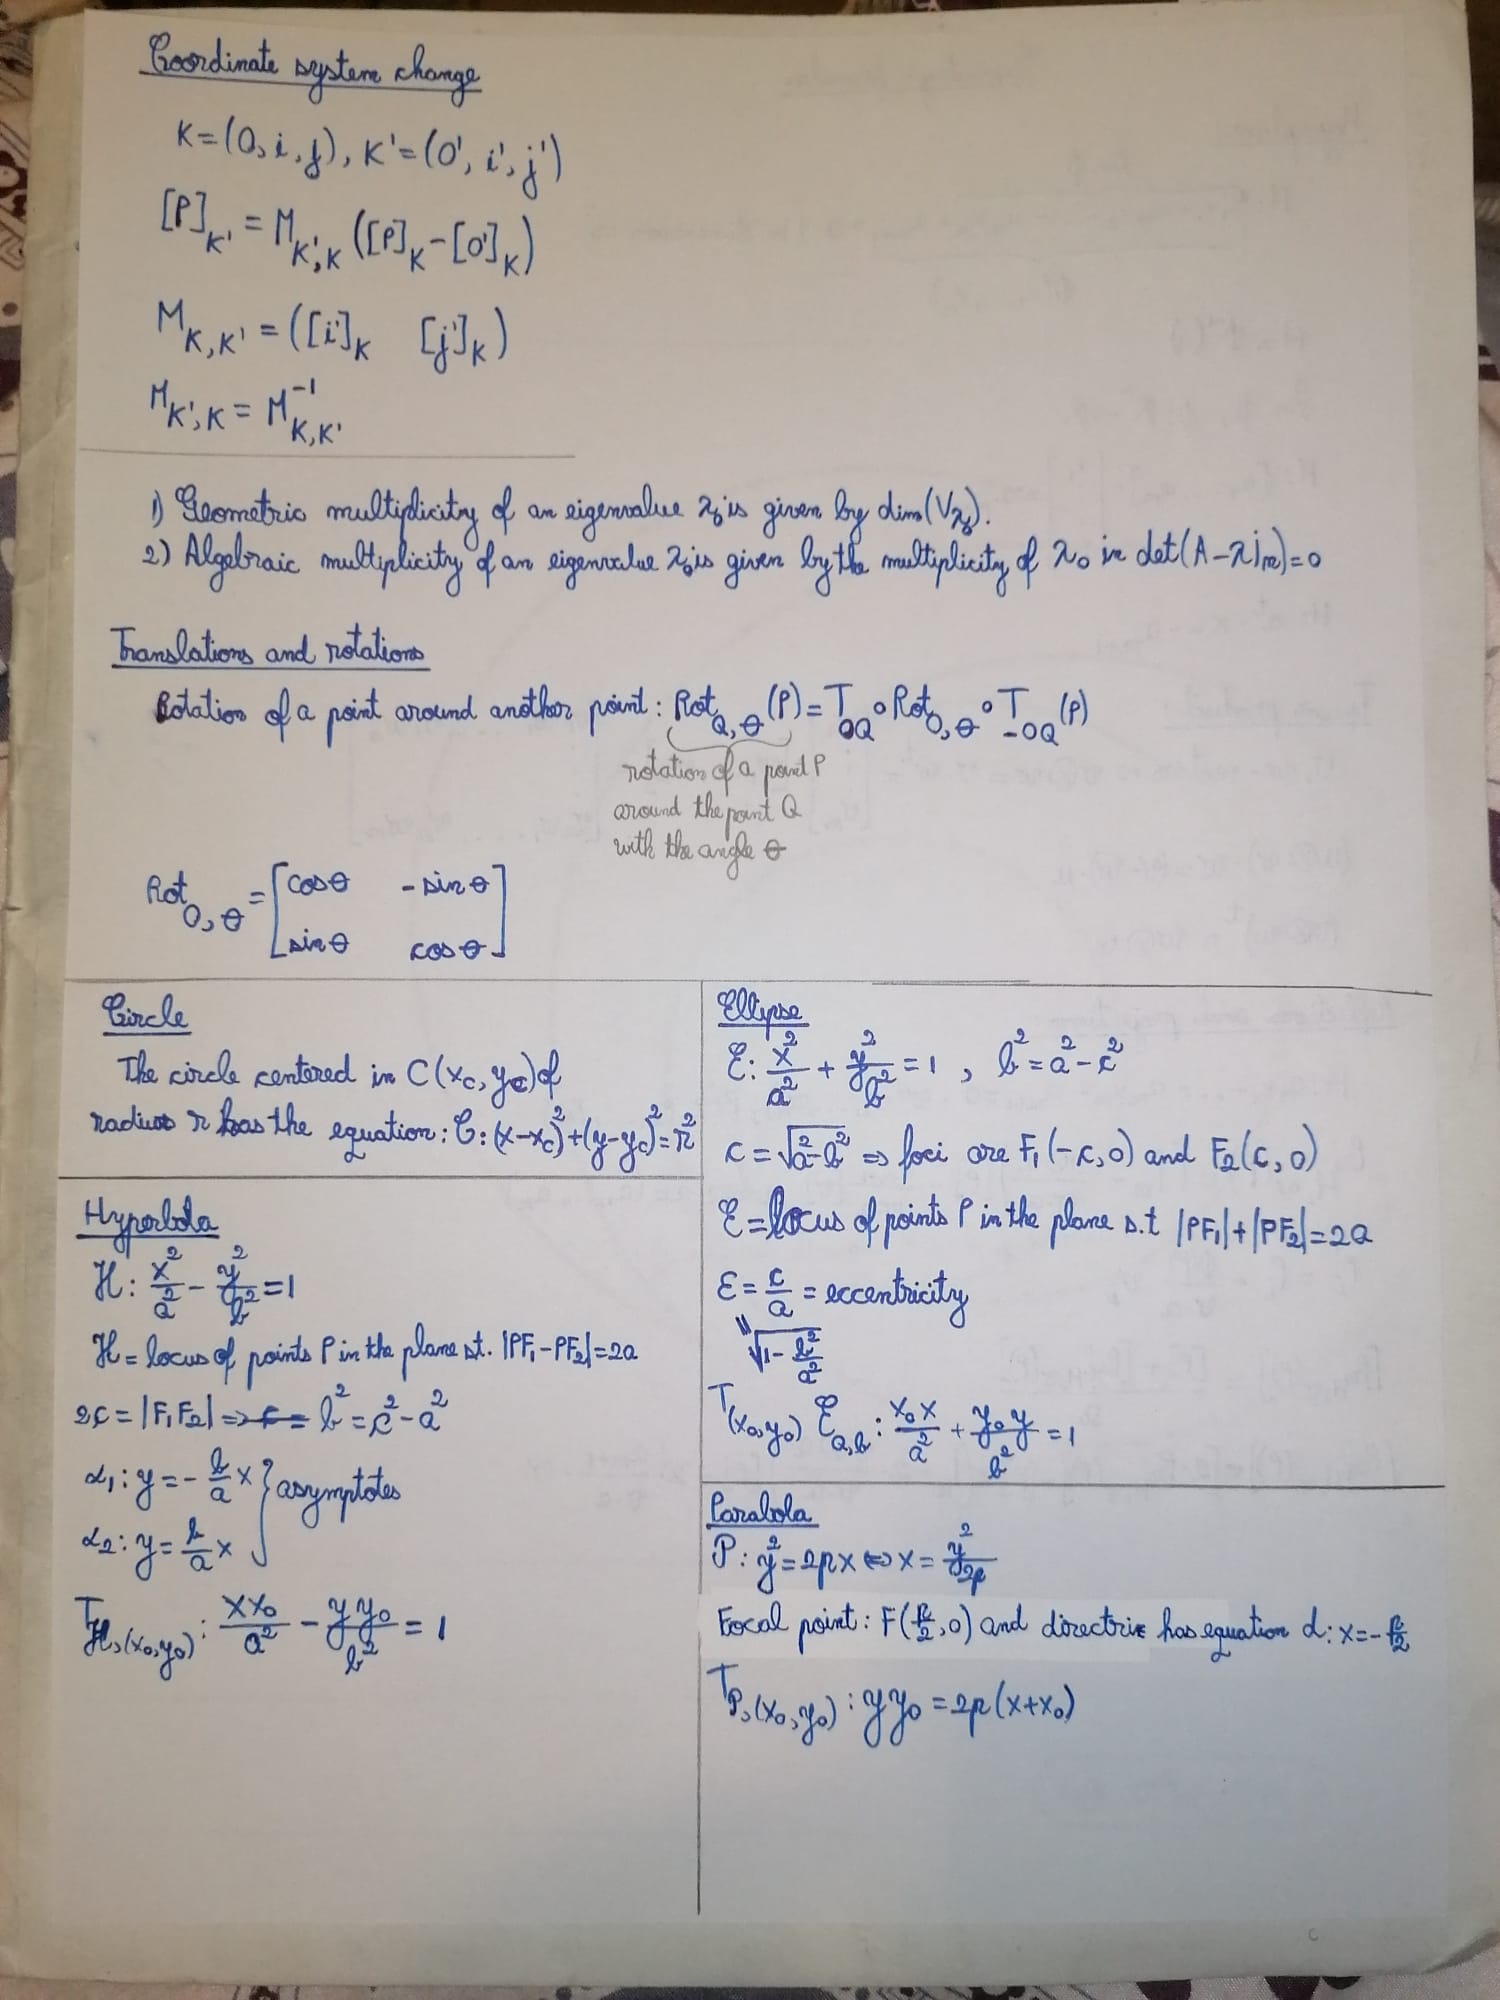 Coordinate system change
K=(O, i, j), K'=(O', i', j')
[P]_K' = M_K',K ([P]_K - [O']_K)
M_K,K' = ([i']_K [j']_K)
M_K',K = M^-1_K,K'
1) Geometric multiplicity of an eigenvalue λ₀ is given by dim(V_λ₀).
2) Algebraic multiplicity of an eigenvalue λ₀ is given by the multiplicity of λ₀ in det(A-λI_n)=0
Translations and rotations
Rotation of a point around another point: Rot_Q,θ (P) = T_OQ ∘ Rot_O,θ ∘ T_-OQ (P)
rotation of a point P
around the point Q
with the angle θ
Rot_O,θ = [cosθ -sinθ
sinθ cosθ]
Circle
The circle centered in C(x_c, y_c) of
radius r has the equation: C: (x-x_c)²+(y-y_c)²=r²
Hyperbola
H: x²/a² - y²/b² = 1
H = locus of points P in the plane s.t. |PF₁-PF₂|=2a
2c = |F₁F₂| => c = b² = c² - a²
α₁: y = -b/a x } asymptotes
α₂: y = b/a x
T_H,(x₀,y₀): xx₀/a² - yy₀/b² = 1
Ellipse
E: x²/a² + y²/b² = 1, b² = a² - c²
c = √(a²-b²) => foci are F₁(-c, 0) and F₂(c, 0)
E = locus of points P in the plane s.t |PF₁|+|PF₂|=2a
ε = c/a = eccentricity
=
√(1 - b²/a²)
T_(x₀,y₀) E_a,b: x₀x/a² + y₀y/b² = 1
Parabola
P: y² = 2px <=> x = y²/2p
Focal point: F(p/2, 0) and directrix has equation d: x=-p/2
T_P,(x₀,y₀): yy₀ = 2p(x+x₀)